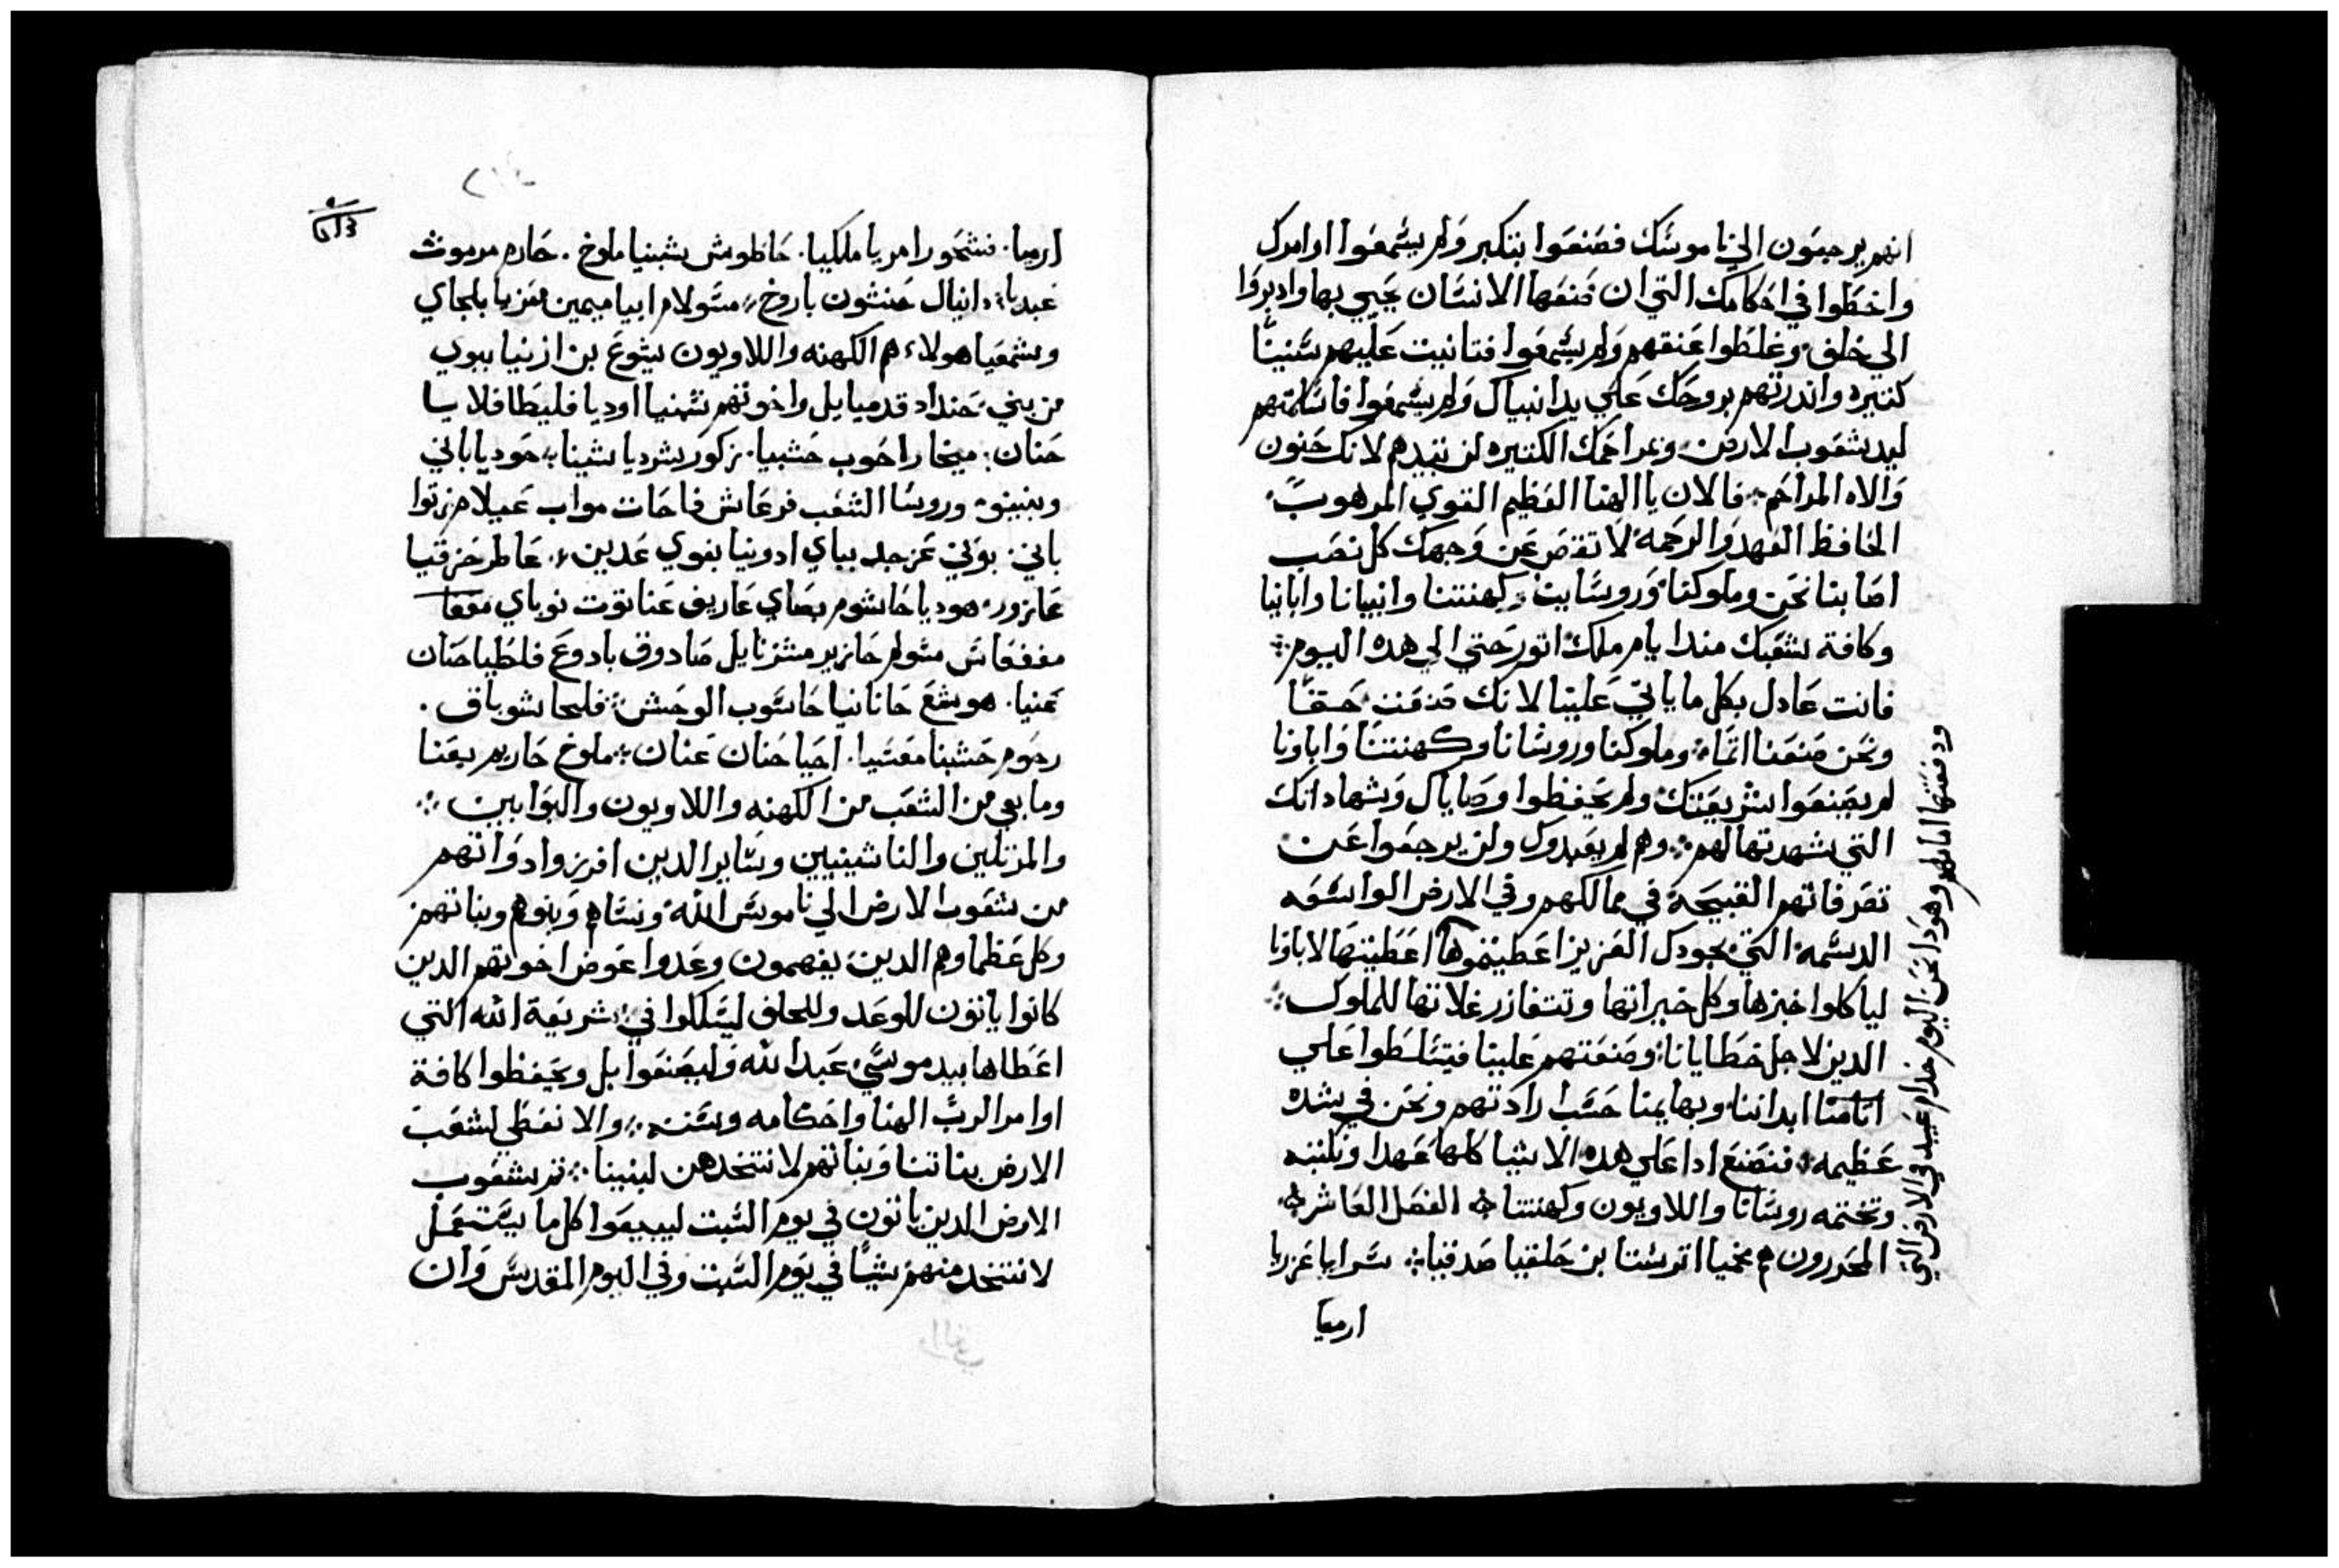 انهم يرجعون الي ناموسك فصنعوا بتكبر ولم يسمعوا اوامرك
واخطوا في احكامك التي ان صنعها الانسان يحيي بها وادبروا
الي خلف وغلظوا عنقهم ولم يسمعوا فتانيت عليهم سنينا
كتيره واندرتهم بروحك علي يد انبياك ولم يسمعوا فاسلمتهم
ليد شعوب الارض وبمراحمك الكتيره لن تبيدهم لانك حنون
والاه المراحم فالان يا الهنا العظيم القوي المرهوب
الحافظ العهد والرحمه لا تقص عن وجهك كل نصب
اصابنا نحن وملوكنا وروسانا وكهنتنا وانبيانا وابانيا
وكافة شعبك مندا يام ملك اتور حتي الي هده اليوم
فانت عادل بكل ما ياتي علينا لانك صنعت حقا
ونحن صنعنا اتما وملوكنا وروسانا وكهنتنا واباونا
لم يصنعوا شريعتك ولم يحفظوا وصاياك وشهاداتك
التي شهدتها لهم وهم لم يعبدوك ولن يرجعوا عن
تصرفاتهم القبيحة في ممالكهم وفي الارض الواسعه
الدسمه التي بجودك الغزيز اعطيتموها اعطيتها لاباونا
لياكلوا خبزها وكل خيراتها وتتغازر غلاتها للملوك
الدين لاجل خطايانا وضعتهم علينا فيتسلطوا علي
اتامنا ابداننا وبهايمنا حسب ارادتهم ونحن في شده
عظيمه فنصنع ادا علي هده الاشيا كلها عهدا ونكتبه
وتختمه روسانا واللاويون وكهنتنا الفصل العاشر
المحررون هم نحميا اترستا بن حلقيا صدقيا سرايا عزريا
ارميا
ودفعتها امامهم وهودا نحن اليوم خدام عبيد في الارض التي
ارميا فشحور امريا ملكيا حاطوش شبنيا ملوخ حارم مرموث
عبديا دانيال حنثون باروخ مسولام ابيا ميمين معزيا بلجاي
وشمعيا هولاء هم الكهنه واللاويون يشوع بن ازنيا ببوي
من بني حنداد قدميايل واخوتهم شهنيا اوديا فليطا فلايا
حنان ميخا راحوب حشبيا زكور شرديا شبنا حوديا باني
وبنينو وروسا الشعب فرعاش فاحات مواب عيلام زتوا
باني بوني عزجد بباي ادونيا بغوي عدين عاطر حزقيا
عازور هوديا حاشوم بصاي عاريف عناتوت نوباي مفعا
مغفعاس مسولم حازير مشزنايل صادوق يادوع فلطيا حنان
عنيا هوشع حانانيا حاسوب الوحش فلحا شوباق
رحوم حشبنا معسيا احيا حنان عنان ملوخ حاريم بعنا
وما بقي من الشعب من الكهنه واللاويون والبوابين
والمزتلين والناشينيين وساير الدين افرزوا دواتهم
من شعوب الارض الي ناموس الله ونساهم وبنوهم وبناتهم
وكل عظماوهم الدين يفهمون وعدوا عوض اخوتهم الدين
كانوا ياتون للوعد وللحلف ليسلكوا في شريعة الله التي
اعطاها بيد موسي عبد الله وليصنعوا بل ويحفظوا كافة
اوامر الرب الهنا واحكامه وسننه والا نعطي لشعب
الارض بناتنا وبناتهم لا نتخدهن لبنينا تم شعوب
الارض الدين ياتون في يوم السبت ليبيعوا كل ما يستعمل
لا نتخد منهم شيا في يوم السبت وفي اليوم المقدس وان